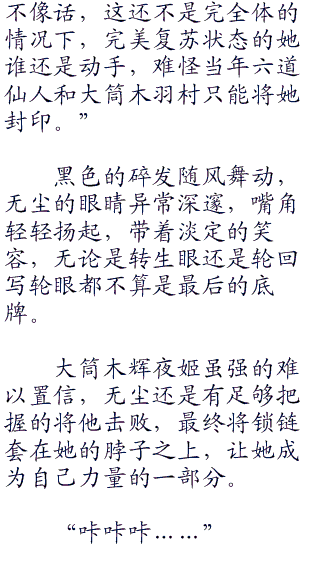 不像话，这还不是完全体的
情况下，完美复苏状态的她
谁还是动手，难怪当年六道
仙人和大筒木羽村只能将她
封印。”
黑色的碎发随风舞动，
无尘的眼睛异常深邃，嘴角
轻轻扬起，带着淡定的笑
容，无论是转生眼还是轮回
写轮眼都不算是最后的底
牌。
大筒木辉夜姬虽强的难
以置信，无尘还是有足够把
握的将他击败，最终将锁链
套在她的脖子之上，让她成
为自己力量的一部分。
“咔咔咔……”